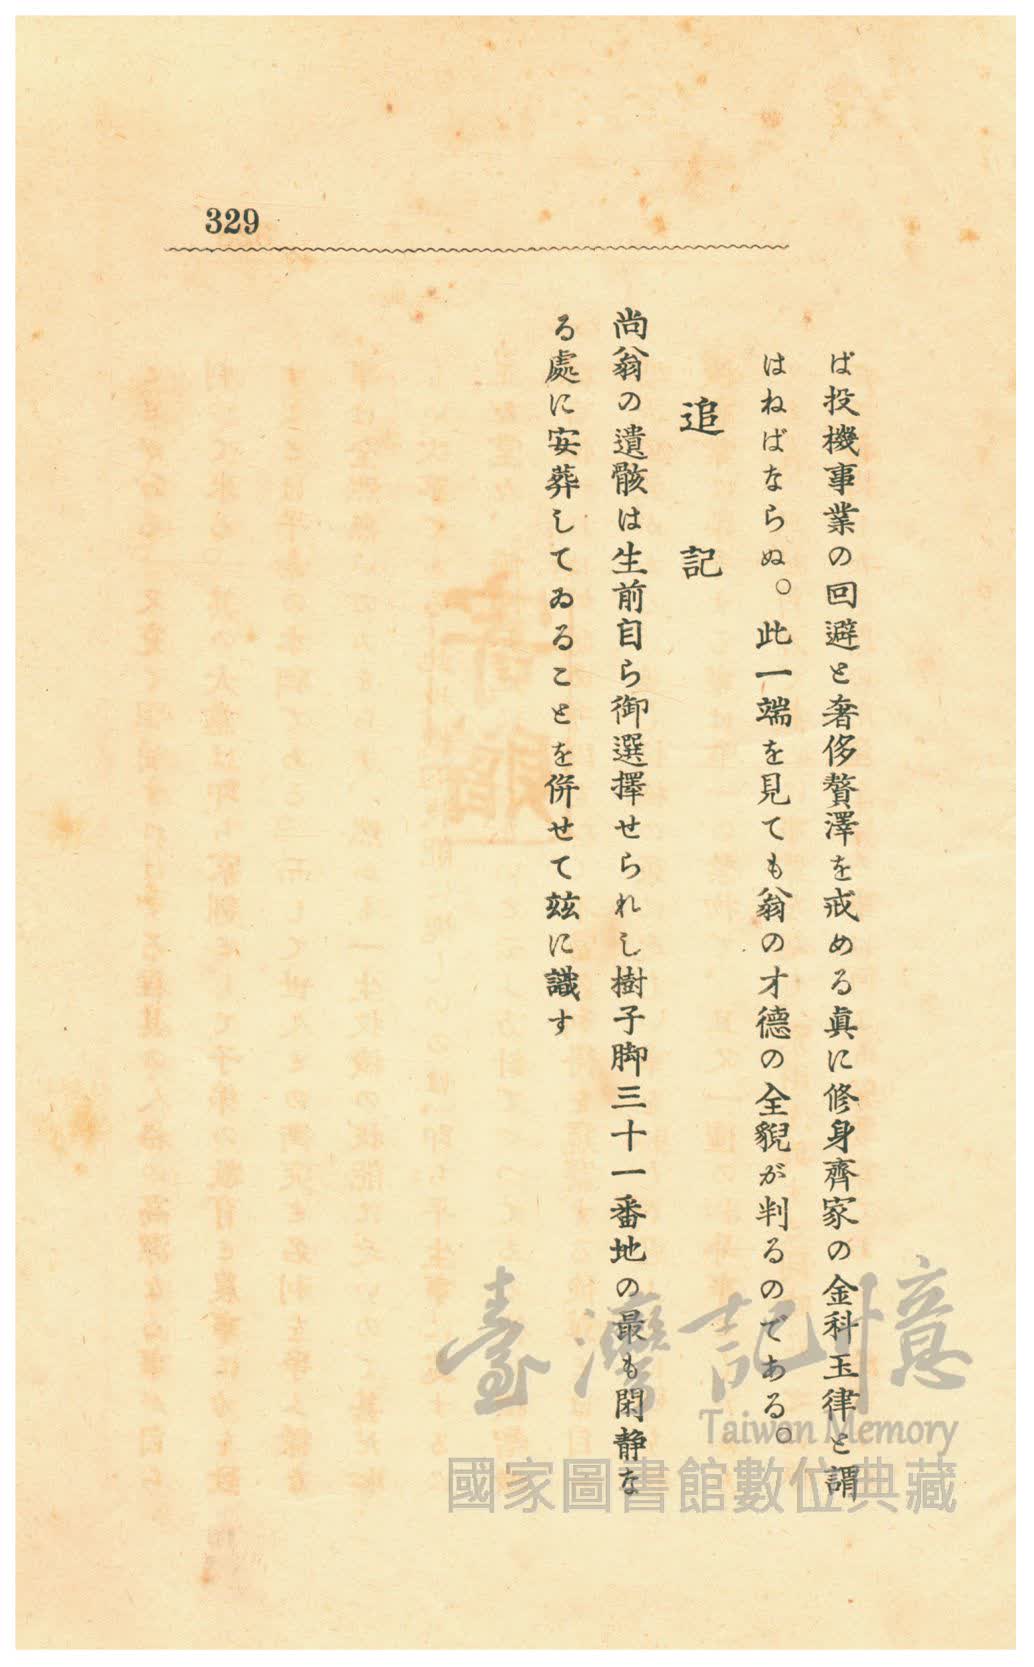 329
ば投機事業の回避と奢侈贅澤を戒める眞に修身齊家の金科玉律と謂
はねばならぬ。此一端を見ても翁の才德の全貎が判るのである。
追記
尚翁の遺骸は生前自ら御選擇せられし樹子脚三十一番地の最も閑靜な
る處に安葬してゐることを併せて玆に識す
臺灣記憶
Taiwan Memory
國家圖書館數位典藏